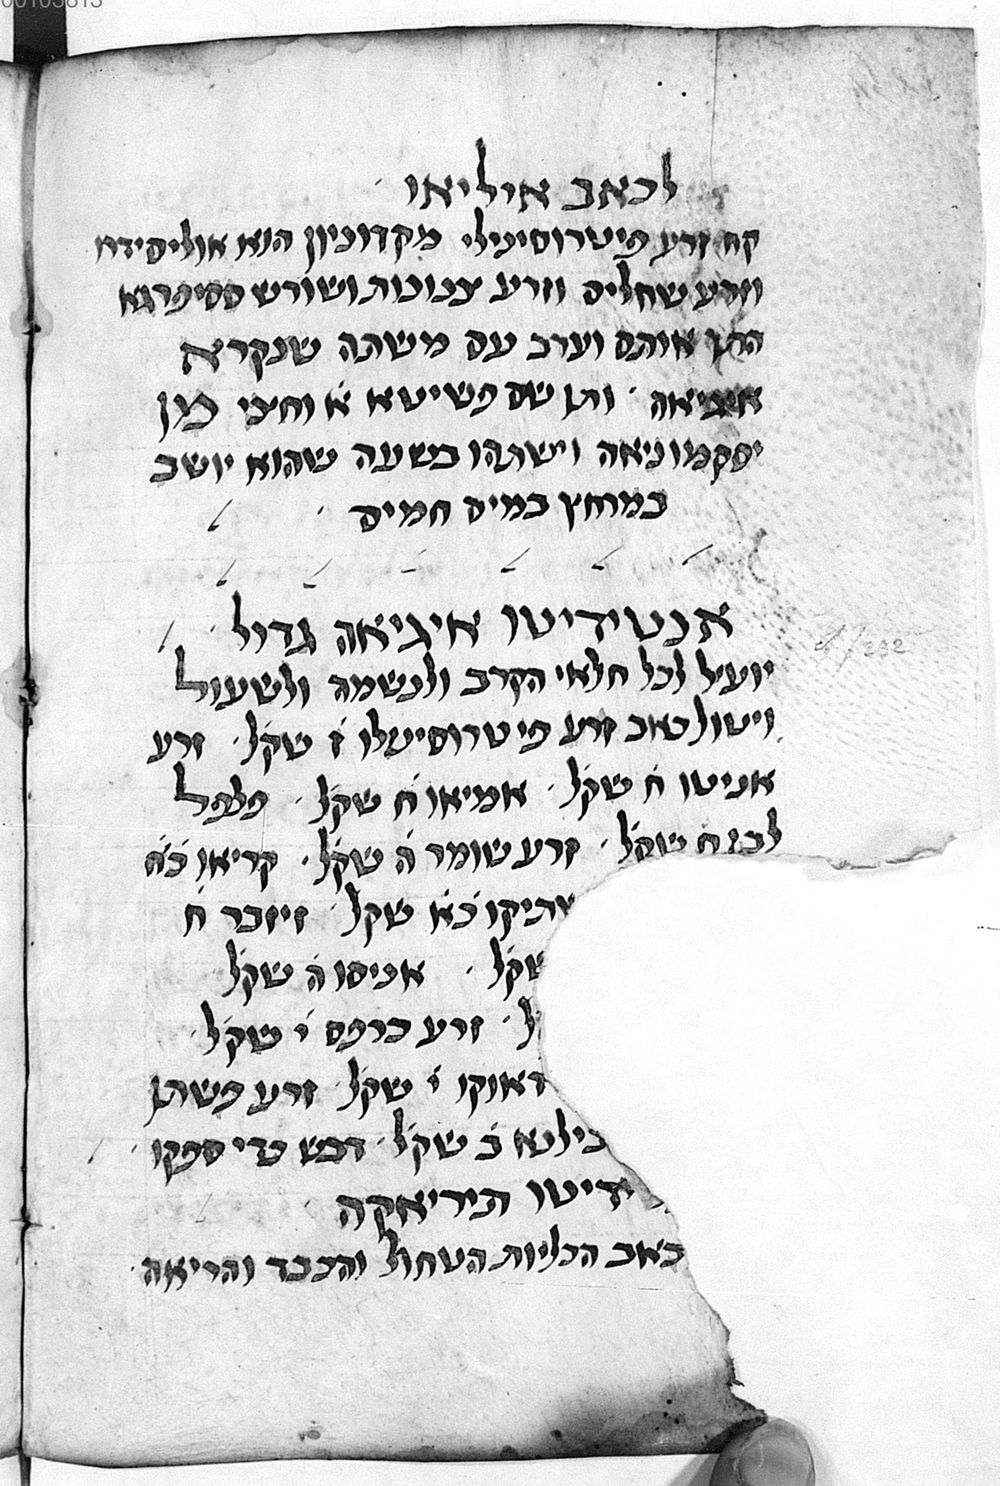 00105813
לכאב איליאו
קח זרע פיטרוסינילי מקדוניון הוא אוליסידח
וזרע שחלים וזרע צנונות ושורש ססיפרגא
הדק אותם וערב עם משתה שנקרא
איגיאה ותן שם פשיטא א׳ וחצי מן
יסקמוניאה וישתהו בשעה שהוא יושב
במרחץ במים חמים
אנטידיטו איגיאה גדול
יועיל לכל חלאי הקרב ולנשמה ולשעול
ויטול כאב זרע פיטרוסיעלו ז שקל זרע
אניטו ח שקל אמיאו ח שקל פלפל
לבן ח שקל זרע שומר ה שקל קריאו כ׳ח
כ׳א שקל זיזבר ח
שקל אניסו ה שקל
ל זרע כרפס י שקל
דאוקו י שקל זרע פשתן
ב שקל דבש כדי ספקו
ידיטו תיריאקה
כאב הכליות הטחול והכבד והריאה